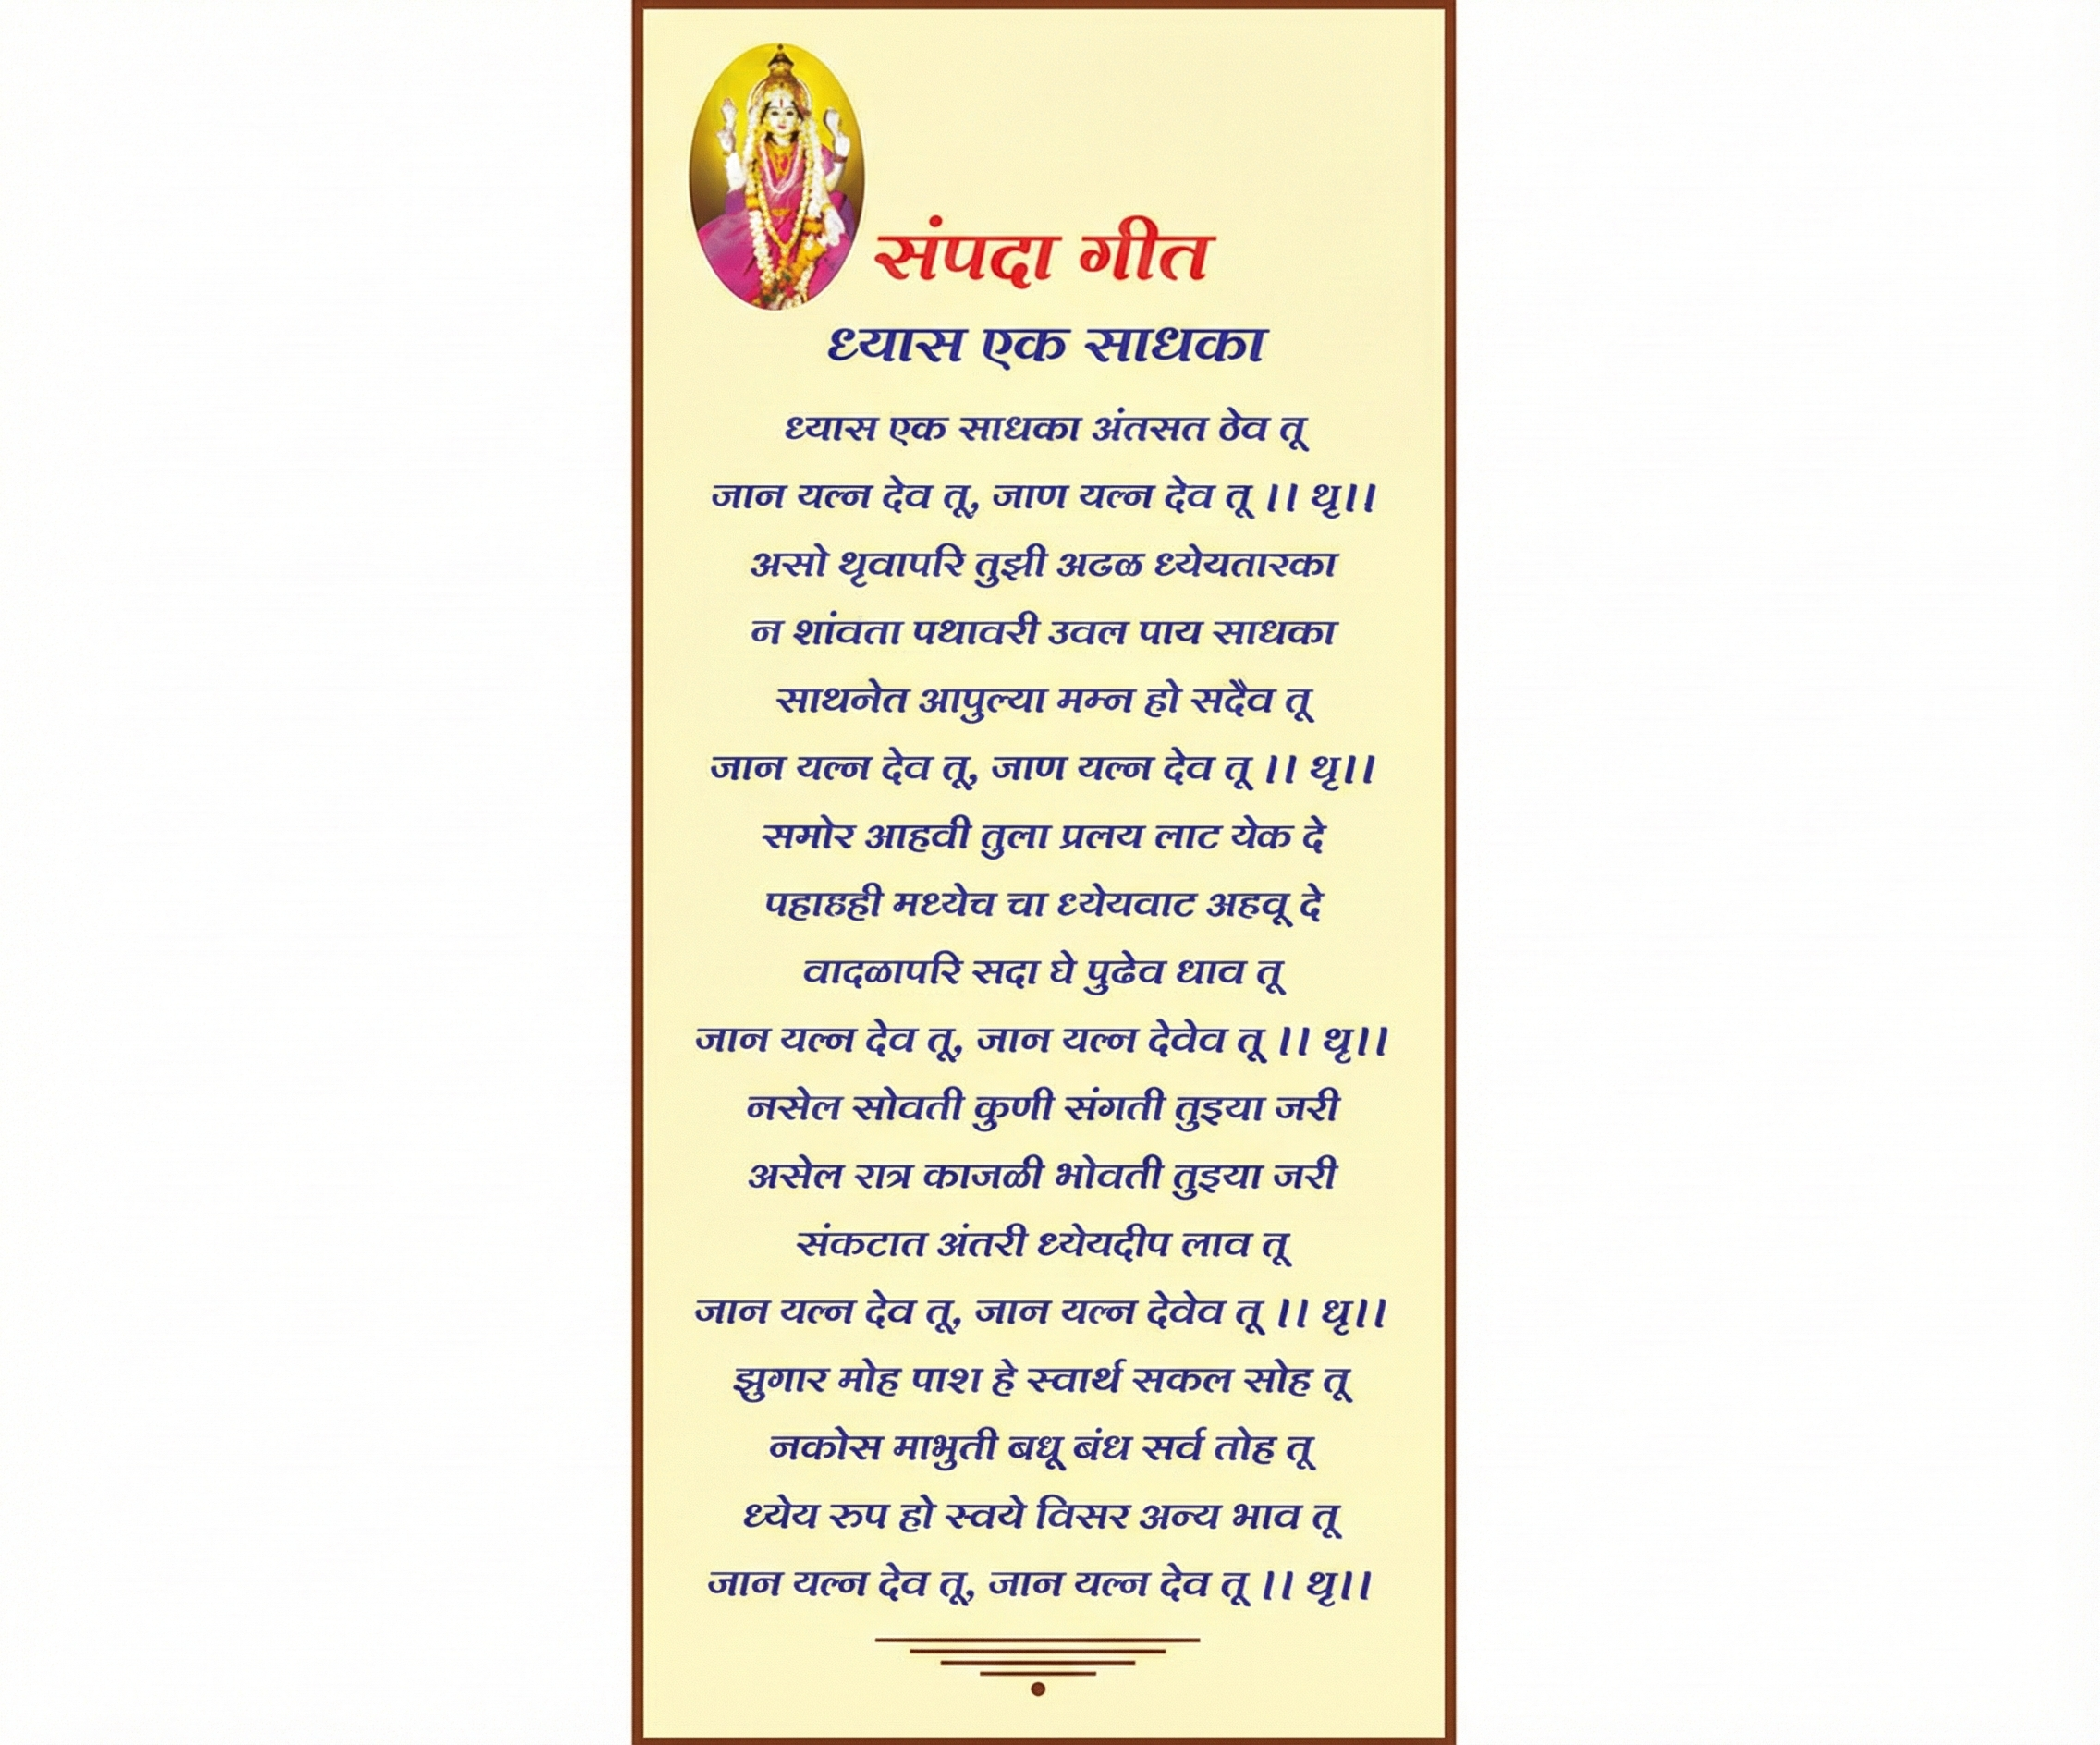 संपदा गीत
ध्यास एक साधका
ध्यास एक साधका अंतसत ठेव तू
जान यत्न देव तू, जाण यत्न देव तू ।। थृ।।
असो थृवापरि तुझी अढळ ध्येयतारका
न शांवता पथावरी उवल पाय साधका
साथनेत आपुल्या मम्न हो सदैव तू
जान यत्न देव तू, जाण यत्न देव तू ।। थृ।।
समोर आहवी तुला प्रलय लाट येक दे
पहाहही मध्येच चा ध्येयवाट अहवू दे
वादळापरि सदा घे पुढेव धाव तू
जान यत्न देव तू, जान यत्न देवेव तू ।। थृ।।
नसेल सोवती कुणी संगती तुइया जरी
असेल रात्र काजळी भोवती तुइया जरी
संकटात अंतरी ध्येयदीप लाव तू
जान यत्न देव तू, जान यत्न देवेव तू ।। धृ।।
झुगार मोह पाश हे स्वार्थ सकल सोह तू
नकोस माभुती बधू बंध सर्व तोह तू
ध्येय रुप हो स्वये विसर अन्य भाव तू
जान यत्न देव तू, जान यत्न देव तू ।। थृ।।